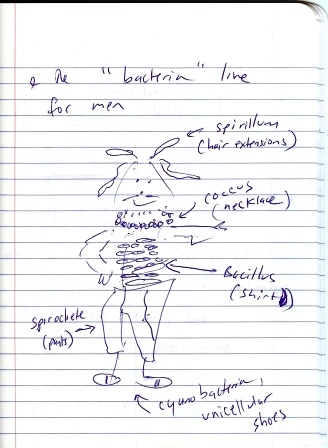 The "bacteria" line
for men
spirillum
(hair extensions)
coccus
(necklace)
Bacillus
(shirt)
spirochete
(pants)
cyanobacteria,
unicellular
shoes